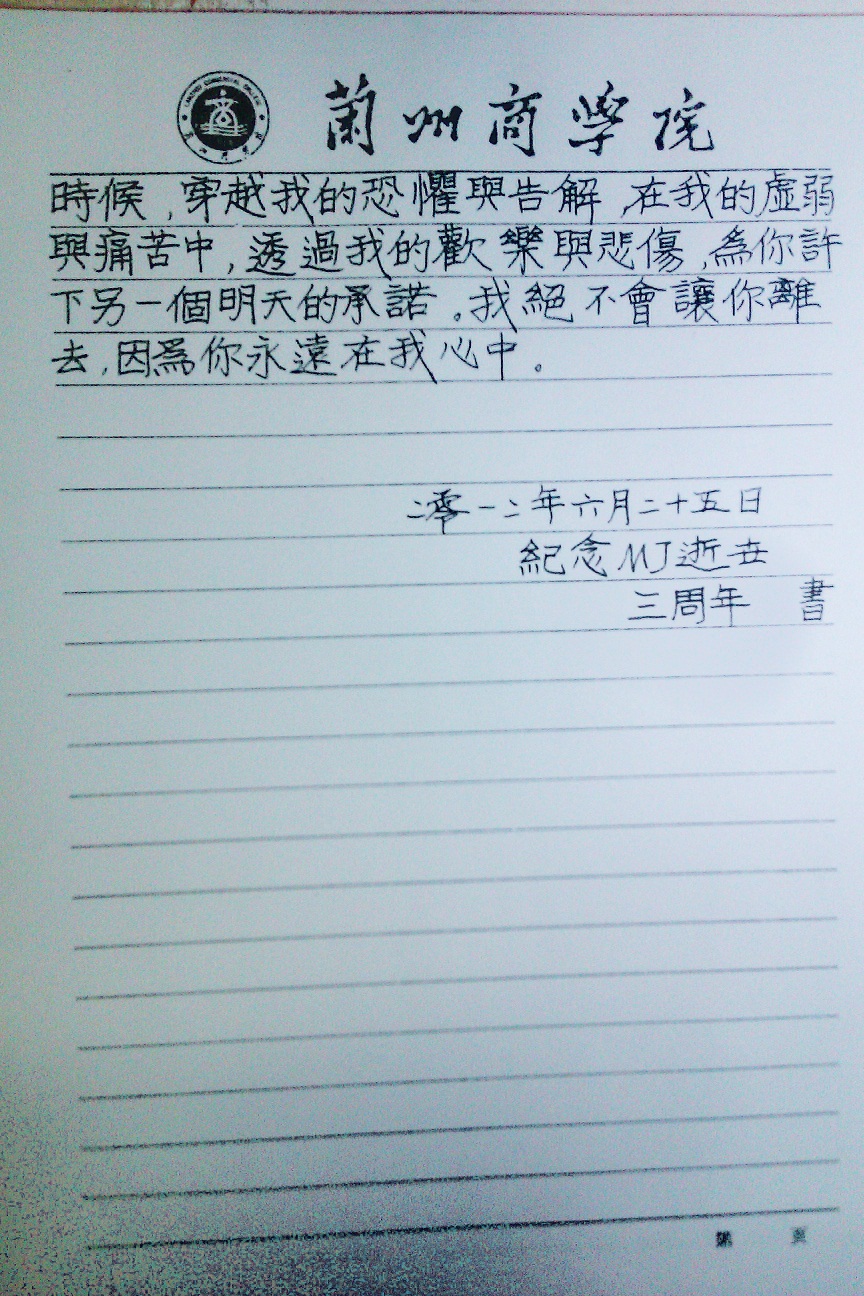 蘭州商學院
時候,穿越我的恐懼與告解,在我的虛弱
與痛苦中,透過我的歡樂與悲傷,為你許
下另一個明天的承諾。我絕不會讓你離
去,因為你永遠在我心中。
二零一二年六月二十五日
紀念MJ逝世
三周年 書
第 頁